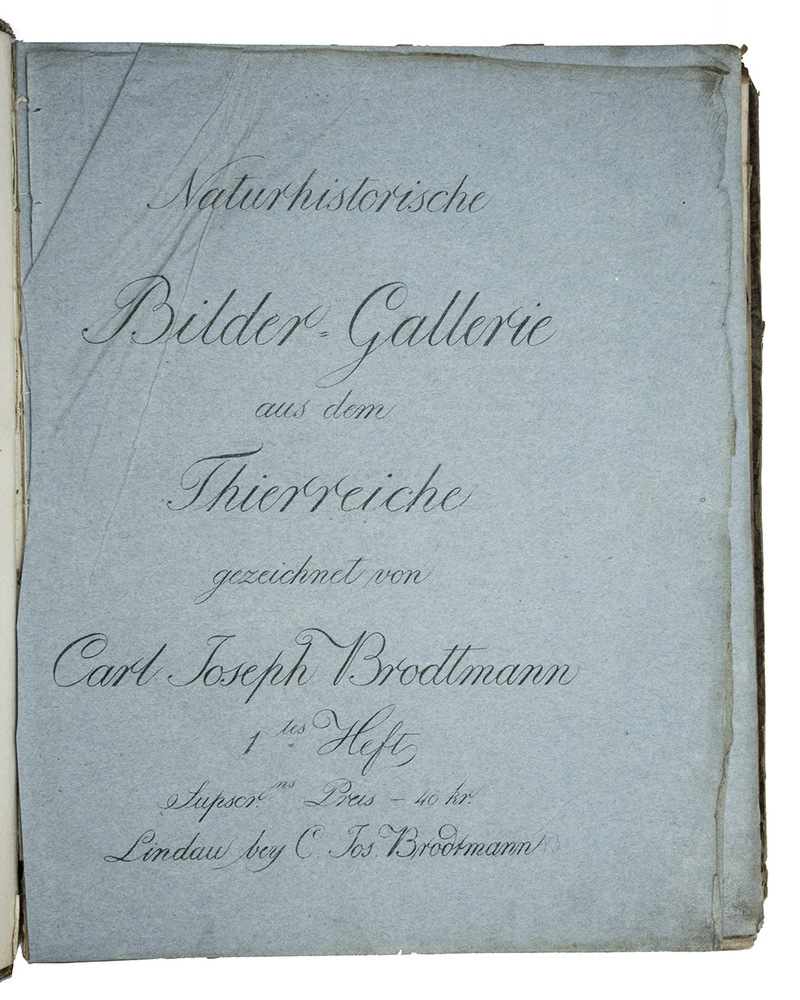 Naturhistorische
Bilder=Gallerie
aus dem
Thierreiche
gezeichnet von
Carl Joseph Brodtmann
1tes Heft
Supscr.ns Preis – 40 kr.
Lindau bey C. Jos. Brodtmann